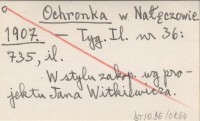 Ochronka w Nałęczowie
1907. — Tyg. Il. nr 36:
735, il.
W stylu zakop. wg pro-
jektu Jana Witkiewicza.